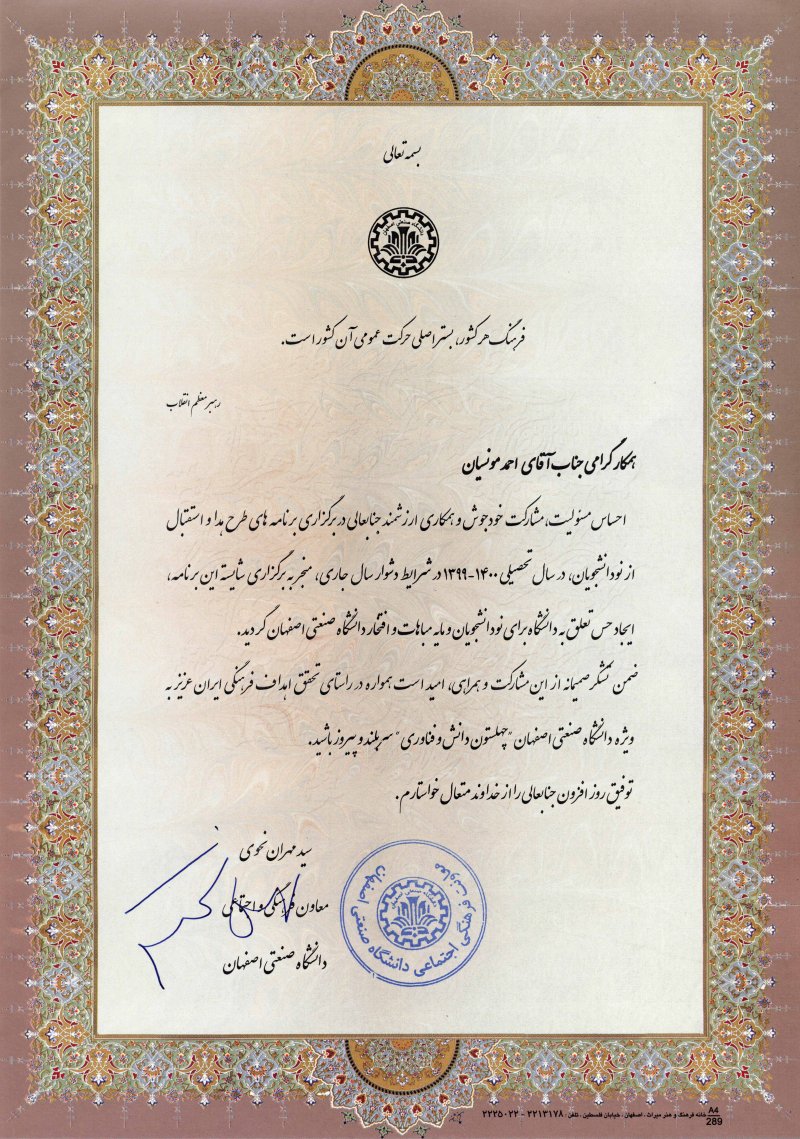 بسمه تعالی
دانشگاه صنعتی اصفهان
فرهنگ هر کشور، بستر اصلی حرکت عمومی آن کشور است.
رهبر معظم انقلاب
همکار گرامی جناب آقای احمد مونسیان
احساس مسئولیت، مشارکت خودجوش و همکاری ارزشمند جنابعالی در برگزاری برنامه های طرح هدا و استقبال
از نودانشجویان، در سال تحصیلی ۱۴۰۰-۱۳۹۹ در شرایط دشوار سال جاری، منجر به برگزاری شایسته این برنامه،
ایجاد حس تعلق به دانشگاه برای نودانشجویان و مایه مباهات و افتخار دانشگاه صنعتی اصفهان گردید.
ضمن تشکر صمیمانه از این مشارکت و همراهی، امید است همواره در راستای تحقق اهداف فرهنگی ایران عزیز به
ویژه دانشگاه صنعتی اصفهان "چهلستون دانش و فناوری" سربلند و پیروز باشید.
توفیق روز افزون جنابعالی را از خداوند متعال خواستارم.
سید مهران نحوی
معاون فرهنگی و اجتماعی
دانشگاه صنعتی اصفهان
معاونت فرهنگی اجتماعی دانشگاه صنعتی اصفهان
خانه فرهنگ و هنر میراث - اصفهان - خیابان فلسطین - تلفن: ۲۲۱۳۱۷۸ - ۲۲۲۵۰۲۲
A4
289